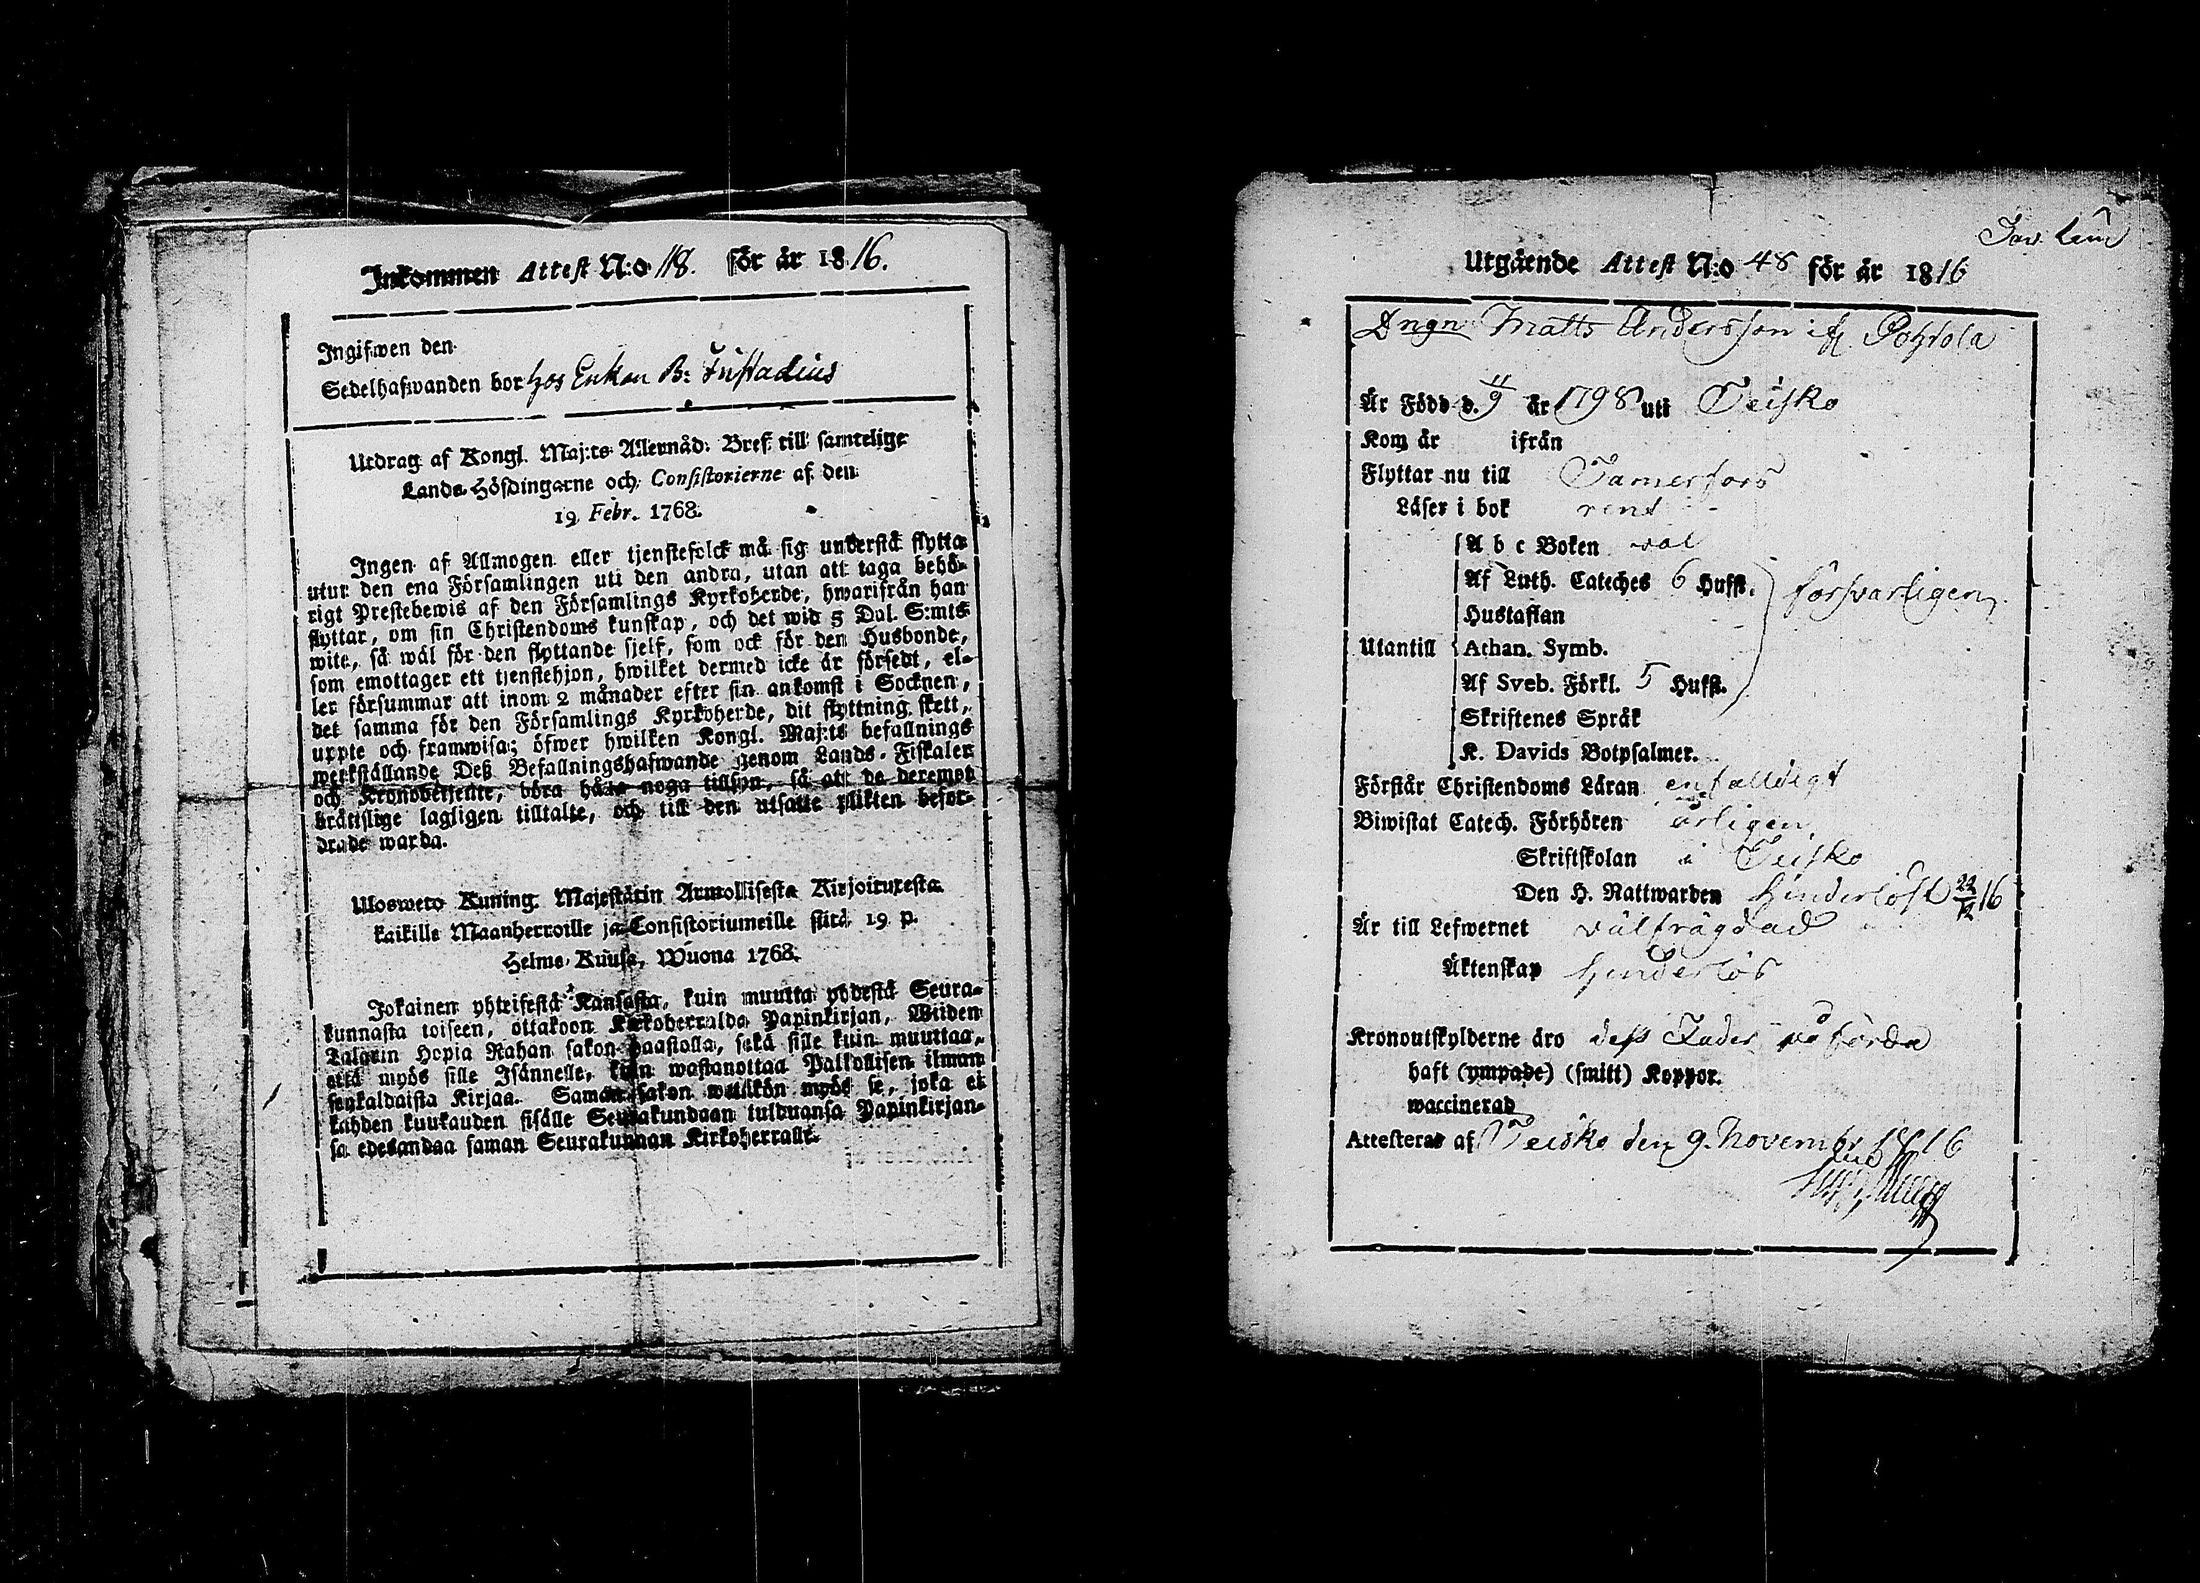 Inkommen Attest N:o 118. för år 1816.
Ingifwen den
Sedelhafwanden bor hos Enkan B:
Utdrag af Kongl. Maj:ts Allernåd. Bref till samtelige
Lands-Höfdingarne och Consistorierne af den
19 Febr. 1768.
Ingen af Allmogen eller tjenstefolck må sig understå flytta
utur den ena Församlingen uti den andra, utan att taga behö-
rigt Prestebewis af den Församlings Kyrkoherde, hwarifrån han
flyttar, om sin Christendoms kunskap, och det wid 5 Dal. S:mts
wite, så wäl för den flyttande sjelf, som ock för den Husbonde,
som emottager ett tjenstehjon, hwilket dermed icke är försedt, el-
ler försummar att inom 2 månader efter sin ankomst i Socknen,
det samma för den Församlings Kyrkoherde, dit flyttning skett,
uppte och framwisa; öfwer hwilken Kongl. Maj:ts befallnings
werkställande Deß Befallningshafwande genom Lands-Fiskaler
och Kronobetjente, böra hålla noga tillsyn, så att de deremot
brätislige lagligen tilltalte, och till den utsatte plikten befor-
drade warda.
Uloswero Kuning. Majestätin Armollisesta Kirjoituxesta
kaikille Maanherroille ja Consistoriumeille siitä 19 p.
Helme-Kuusa, Wuona 1768.
Jokainen yhteisestä Kansasta, kuin muutta yhdestä Seura-
kunnasta toiseen, ottakoon Kirkoherralda Papinkirjan, Wiiden
Talarin Hopia Rahan sakon haastolla, sekä sille kuin muuttaa,
että myös sille Isännelle, kuin wastanottaa Palkollisen ilman
senkaldaista Kirjaa. Saman sakon wetäkön myös se, joka ei
kahden kuukauden sisälle Seurakundaan tulduansa Papinkirjan-
sa edesandaa saman Seurakunnan Kirkoherralle.
Utgående Attest N:o 48 för år 1816
Drngn Matts Andersson ifr. Pohjola
Är Född d. 11/9 år 1798 uti Teisko
Kom år ifrån
Flyttar nu till Tamerfors
Läser i bok rent
A b c Boken wäl
Af Luth. Cateches 6 Hufst. försvarligen
Hustaflan
Utantill Athan. Symb.
Af Sveb. Förkl. 5 Hufst.
Skriftenes Språk
K. Davids Botpsalmer.
Förstår Christendoms Läran enfalldigt
Biwistat Catech. Förhören årligen
Skriftskolan i Teisko
Den H. Nattwarden hinderlöst 22/12 16
Är till Lefwernet välfrägdad
Äktenskap hinderlös
Kronoutskylderne äro dess Fader påförda
haft (ympade) (smitt) Koppor.
waccinerad
Attesteras af Teisko den 9. Novembr 1816